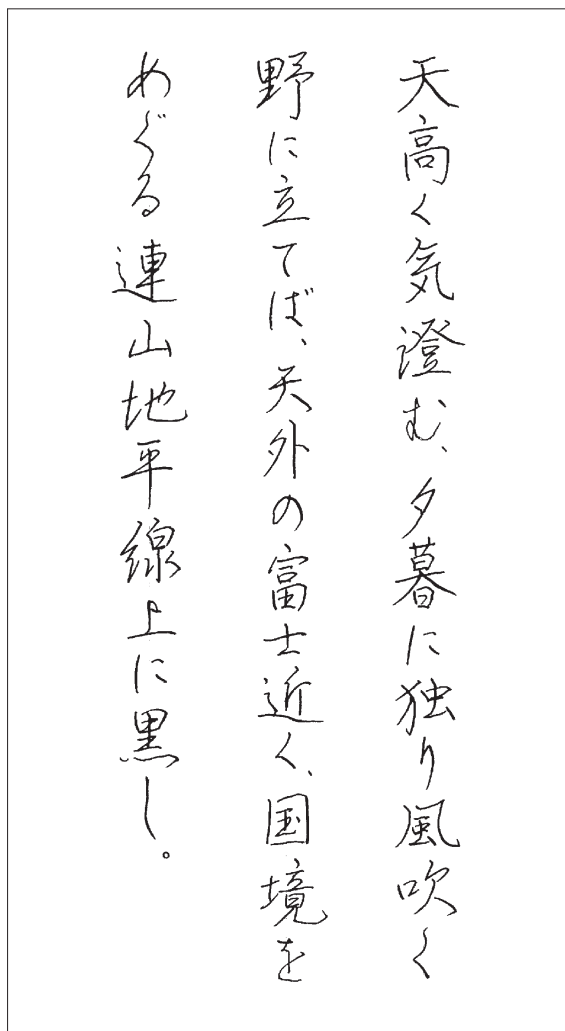 天高く気澄む、夕暮に独り風吹く
野に立てば、天外の富士近く、国境を
めぐる連山地平線上に黒し。